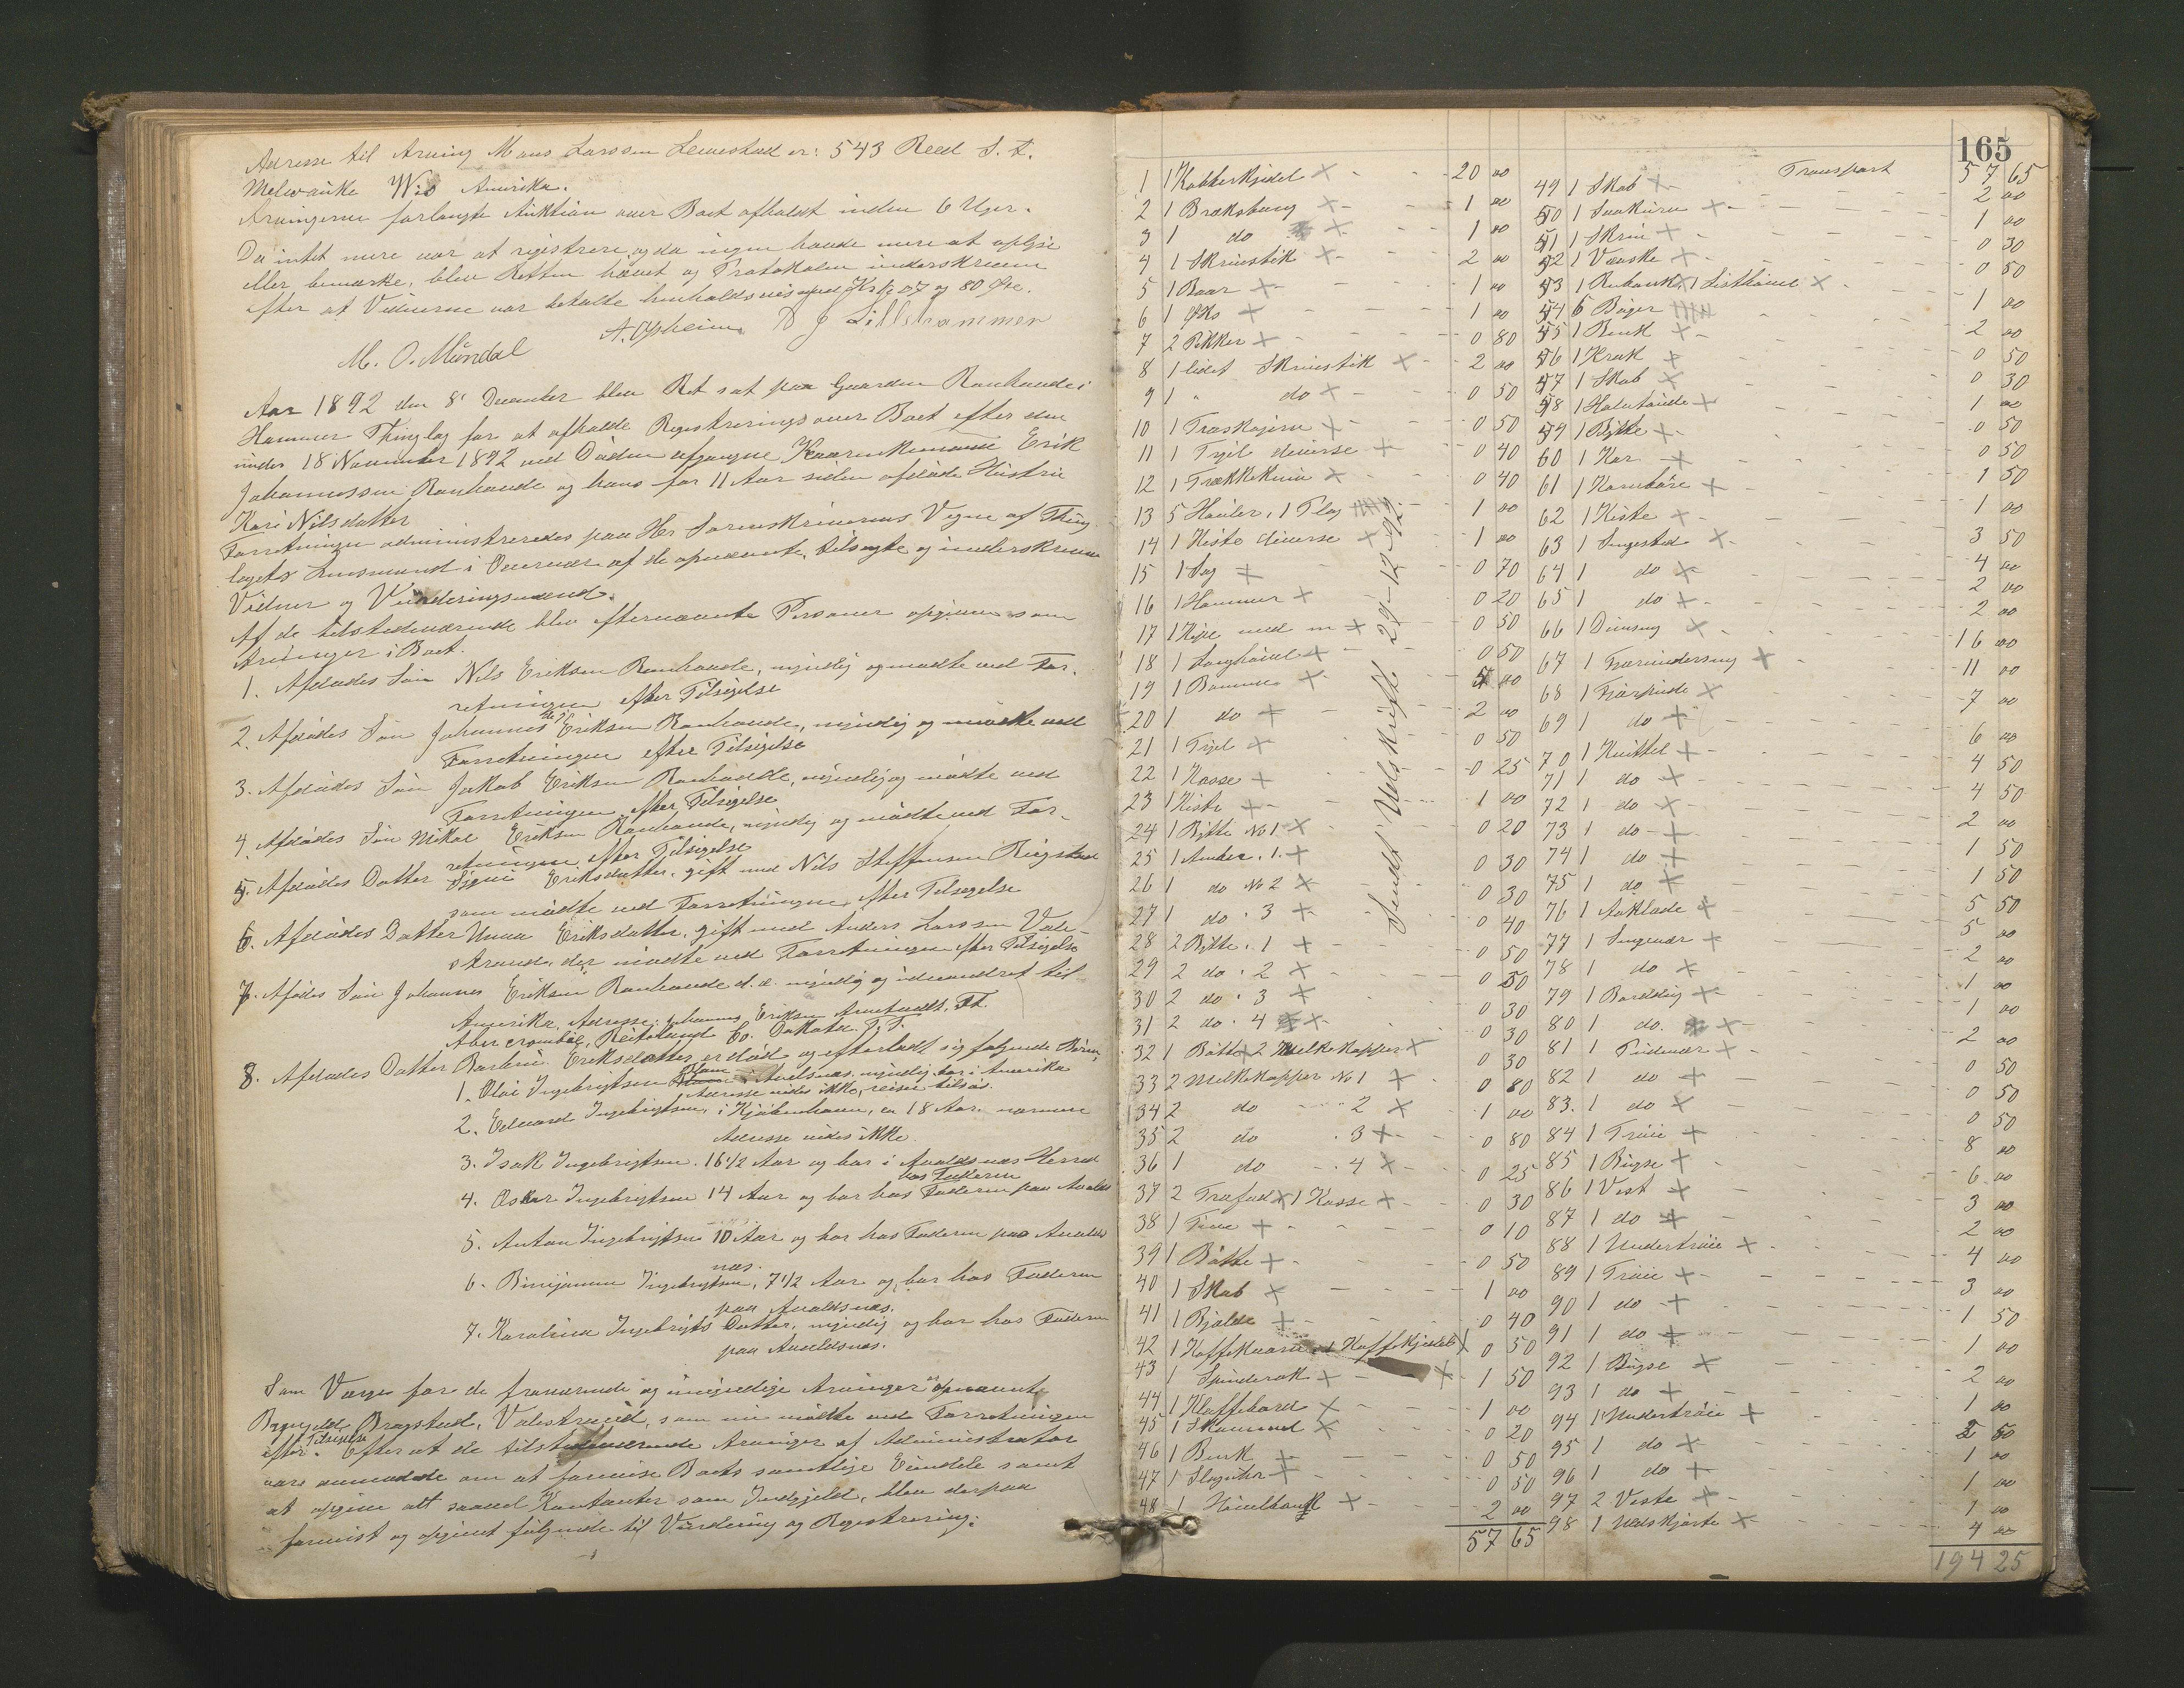 Adresse til Arving Mons Larssen Levestad er: 543 Reed S. t.
Melwauke Wis Amerika.
Arvingerne forlangte Auktion over Boet afholdt inden 6 Uger.
Da intet mere var at registrere, og da ingen havde mere at oplyse
eller bemærke, blev Retten hævet og Protokolen underskreven
efter at Vidnerne var betalte henholdsvis med Kr og 80 Øre.
A. Opheim
M. O. Mundal
Aar 1892 den 8 December blev Ret sat paa Gaarden Ranhaude i
Hammer Thinglag for at afholde Registrering over Boet efter den
under 18 November 1892 ved Døden afgangne Kaarenkemand Erik
Johannessen Ranhaude og hans for 11 Aar siden afdøde Hustru
Kari Nilsdatter
Forretningen administreredes paa Hr Sorenskriverens Vegne af Thing
lagets Lensmand i Overvær af de opnævnte, tilsagte og underskrevne
Vidner og Vurderingsmænd.
Af de tilstedeværende blev efternævnte Personer opgivne som
Arvinger i Boet.
1. Afdødes Søn Nils Eriksen Ranhaude, myndig og mødte ved For-
retningen efter Tilsigelse
2. Afdødes Søn Johannes Eriksen Ranhaude, myndig og mødte ved
Forretningen efter Tilsigelse
3. Afdødes Søn Jakob Eriksen Ranhaude, myndig og mødte ved
Forretningen efter Tilsigelse
4. Afdødes Søn Mikal Eriksen Ranhaude, myndig og mødte ved For-
retningen efter Tilsigelse
5. Afdødes Datter Signi Eriksdatter, gift med Nils Steffensen Ringstad
som mødte ved Forretningen efter Tilsigelse
6. Afdødes Datter Unna Eriksdatter, gift med Anders Larssen Vale-
strand, der mødte ved Forretningen efter Tilsigelse
7. Afdødes Søn Johannes Eriksen Ranhaude d. æ. myndig og udvandret til
Amerika, Adresse: Johannes Eriksen
Abercrombie, Co. Dakota T. T.
8. Afdødes Datter Barbru Eriksdatter er død og efterladt sig følgende Børn
1. Olai Ingebrigtsen myndig, bor i Amerika
Adresse vides ikke, reiser tilsøs.
2. Edvard Ingebrigtsen, i Kjøbenhavn, ca 18 Aar nærmere
Adresse vides ikke.
3. Isak Ingebrigtsen, 16 1/2 Aar og bor i Avaldsnæs Herred
hos Faderen
4. Oskar Ingebrigtsen 14 Aar og bor hos Faderen paa Avalds
5. Anton Ingebrigtsen 10 Aar og bor hos Faderen paa Avalds
næs.
6. Binjamin Ingebrigtsen, 7 1/2 Aar og bor hos Faderen
paa Avaldsnæs.
7. Karolina Ingebrigts Datter, myndig og bor hos Faderen
paa Avaldsnæs.
Som Værge for de fraværende og umyndige Arvinger opnævnte
Brynjeld Bragstad, Valestrand, som nu mødte ved Forretningen
efter Tilsigelse. Efter at de tilstedeværende Arvinger af Administrator
vare anmodede om at forevise Boets samtlige Eiendele samt
at opgive alt saavel Kontanter som Indgjeld, blev derpaa
forevist og opgivet følgende til Vurdering og Registrering:
165
1 1 Kobberkjedel X 20 00
2 1 Bræksbung X 1 00
3 1 do X 1 00
4 1 Skruestik X 2 00
5 1 Boar X 1 00
6 1 Øks X 1 00
7 2 Pikker X 0 80
8 1 lidet Skruestik X 2 00
9 1 " do X 0 50
10 1 X 0 50
11 1 Fiil diverse X 0 40
12 1 Trækkekniv X 0 40
13 5 Høvler, 1 Plog 1 00
14 1 Kiste diverse X 1 00
15 1 Sag X 0 70
16 1 Hammer X 0 20
17 1 Kipe med m X 0 50
18 1 Langhøvel X 0 50
19 1 Bommer X 00
20 1 do X 2 00
21 1 X 0 50
22 1 Kasse X 0 25
23 1 Kiste X 1 00
24 1 Bytte No 1 X 0 20
25 1 Anker " 1 X 0 30
26 1 do No 2 X 0 30
27 1 do " 3 X 0 40
28 2 Bytte " 1 X 0 50
29 2 do " 2 X 0 50
30 2 do " 3 X 0 30
31 2 do " 4 X 0 30
32 1 Bøtte X 2 Melkekopper X 0 30
33 2 Melkekopper No 1 X 0 80
34 2 do " 2 X 1 00
35 2 do " 3 X 0 80
36 1 do " 4 X 0 25
37 2 Trefad X 1 Kasse X 0 30
38 1 Tine X 0 10
39 1 Bøtte X 0 50
40 1 Skab X 1 00
41 1 Bjølde X 0 40
42 1 Kaffekværn 1 Kaffekjedel X 0 50
43 1 Spinderok X 1 50
44 1 Klaffebord X 1 00
45 1 X 0 20
46 1 Benk X 0 50
47 1 Slaguhr X 0 50
48 1 X 2 00
57 65
Sendt Udskrift 29-12-92
Transport 57 65
49 1 Skab X 2 00
50 1 X 1 00
51 1 Skrin X 0 30
52 1 Væske X 0 50
53 1 Rubank X 1 Listhøvel X 1 00
54 6 Bøger 2 00
55 1 Benk X 0 50
56 1 Krak X 0 30
57 1 Skab X 1 00
58 1 Halvtønde X 0 50
59 1 Bytte X 0 50
60 1 Kar X 1 50
61 1 Kornbøre X 1 00
62 1 Kiste X 3 50
63 1 Sengested X 4 00
64 1 do X 2 00
65 1 do X 2 00
66 1 Dunseng X 16 00
67 1 Fjærunderseng X 11 00
68 1 X 7 00
69 1 do X 6 00
70 1 Kvittel X 4 50
71 1 do X 4 50
72 1 do X 2 00
73 1 do X 1 50
74 1 do X 1 50
75 1 do X 5 50
76 1 Aaklæde X 5 00
77 1 Sengevær X 2 00
78 1 do X 1 00
79 1 Borddug X 1 00
80 1 do X 2 00
81 1 Pudevær X 0 50
82 1 do X 0 50
83 1 do X 0 50
84 1 Trøie X 8 00
85 1 Buxe X 6 00
86 1 Vest X 3 00
87 1 do X 2 00
88 1 Undertrøie X 4 00
89 1 Trøie X 3 00
90 1 do X 1 50
91 1 do X 1 00
92 1 Buxe X 2 00
93 1 do X 1 00
94 1 Undertrøie X 2 50
95 1 do X 1 00
96 1 do X 1 00
97 2 Veste X 1 00
98 1 Uldskjorte X 4 00
194 25